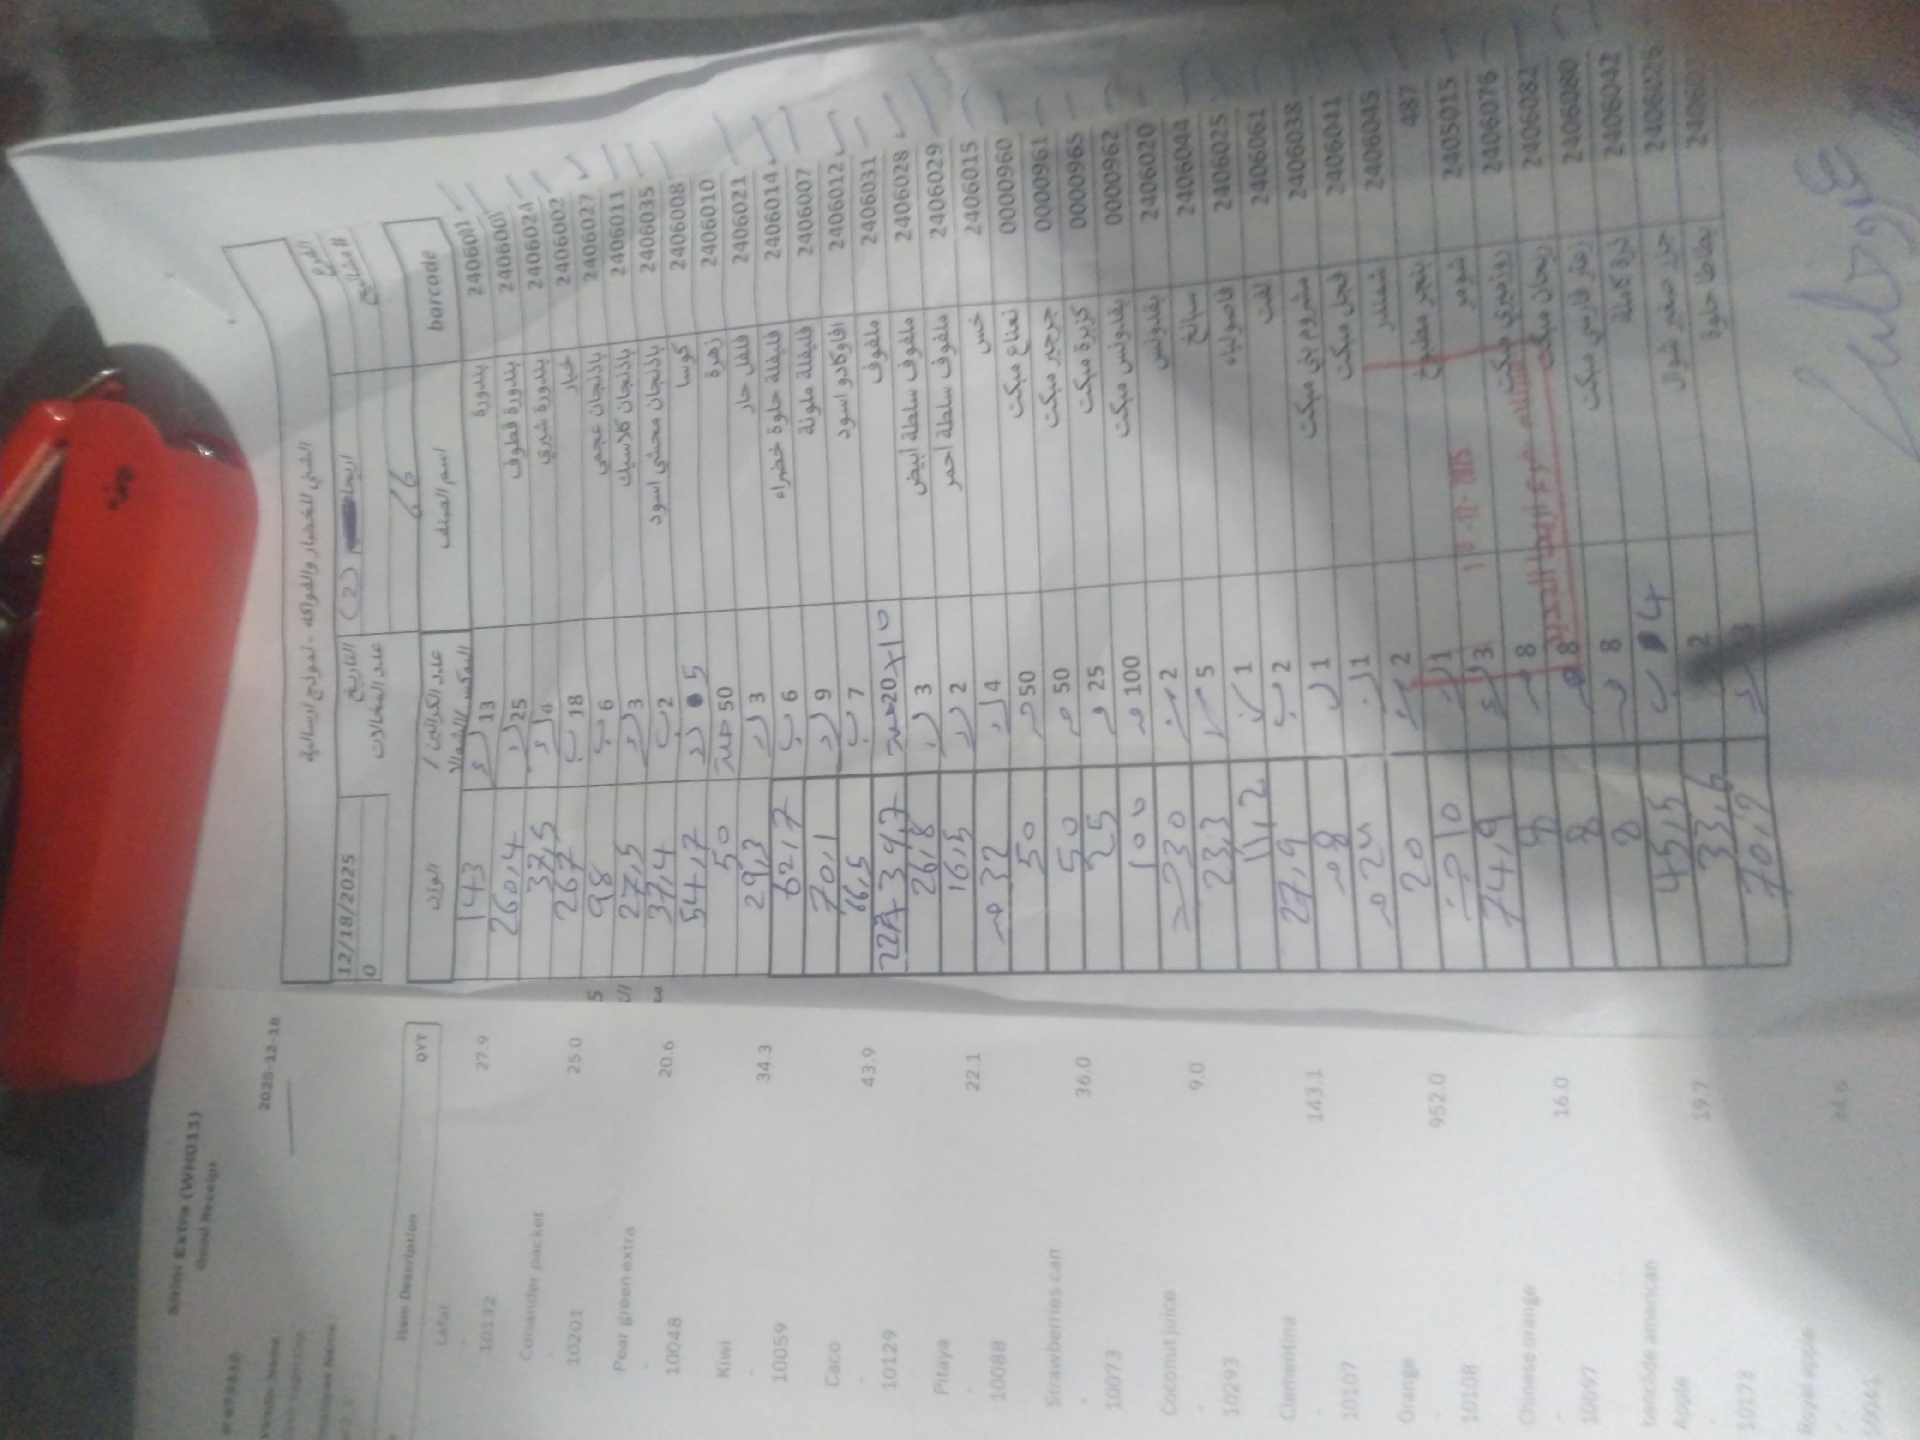 الشني للخضار والفواكه - نموذج ارسالية
12/18/2025 التاريخ (2) اريحا الفرع
0
26
الوزن اسم الصنف barcode
143 13 بندورة 2406001
260,4 25 بندورة قطوف
37,5 بندورة شيري 2406024
267 18 خيار 2406002
98 6 باذنجان عجمي 2406027
27,5 3 باذنجان كلاسيك 2406011
37,4 2 باذنجان محشي اسود 2406035
54,7 5 كوسا 2406008
50 50 زهرة 2406010
29,3 3 فلفل حار 2406021
62,7 6 فليفلة حلوة خضراء 2406014
70,1 9 فليفلة ملونة 2406007
66,5 7 افوكادو اسود 2406012
20+10 ملفوف 2406031
26,8 3 ملفوف سلطة ابيض 2406028
16,5 2 ملفوف سلطة احمر 2406029
32 4 خس 2406015
50 50 نعناع مبكت 0000960
50 50 جرجير مبكت 0000961
25 25 كزبرة مبكت 0000965
100 100 بقدونس مبكت 0000962
30 2 بقدونس 2406020
23,3 5 سبانخ 2406044
11,2 1 فاصولياء 2406025
27,9 2 لفت 2406061
8 1 مشروم بني مبكت 2406038
24 1 فجل مبكت 2406041
20 2 شمندر 2406045
10 1 بنجر مطبوخ 487
74,9 3 شومر 2405015
8 8 روزميري مبكت 2406076
8 8 ريحان مبكت 2406082
8 8 زعتر فارسي مبكت 2406080
45,5 4 ذرة كاملة 2406042
33,6 2 جزر صغير شوال 2406026
70,9 3 بطاطا حلوة
Good Receipt
2025-12-18
Item Description QYT
Lafat
10132 27.9
Coriander packet
10201 25.0
Pear green extra
10048 20.6
Kiwi
10059 34.3
Caco
10129 43.9
Pitaya
10088 22.1
Strawberries can
10073 36.0
Coconut juice
10293 9.0
Clementina
10107 143.1
Orange
10108 952.0
Chinese orange
10097 16.0
american
Apple
10173 19.7
Royel apple